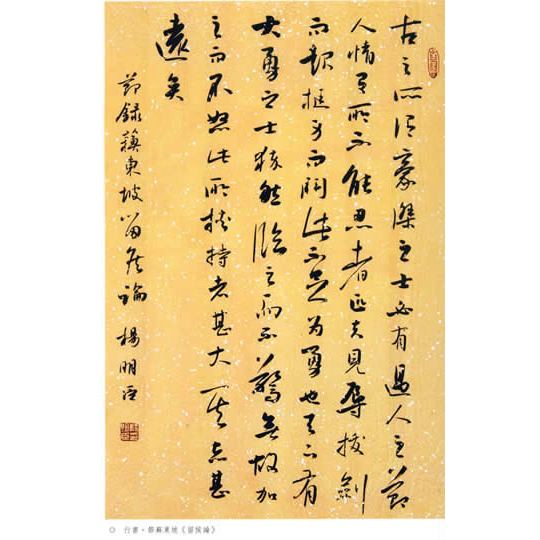 古之所謂豪傑之士必有過人之節
人情有所不能忍者匹夫見辱拔劍
而起挺身而鬥此不足為勇也天下有
大勇之士猝然臨之而不驚無故加
之而不怒此所挾持者甚大其志甚
遠矣
節錄蘇東坡留侯論 楊明臣
行書·節蘇東坡《留侯論》